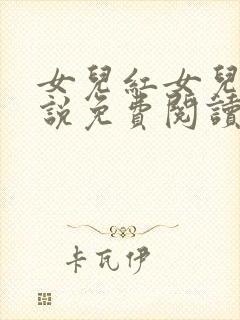 女兒紅女兒
說免費閱讀
卡瓦伊